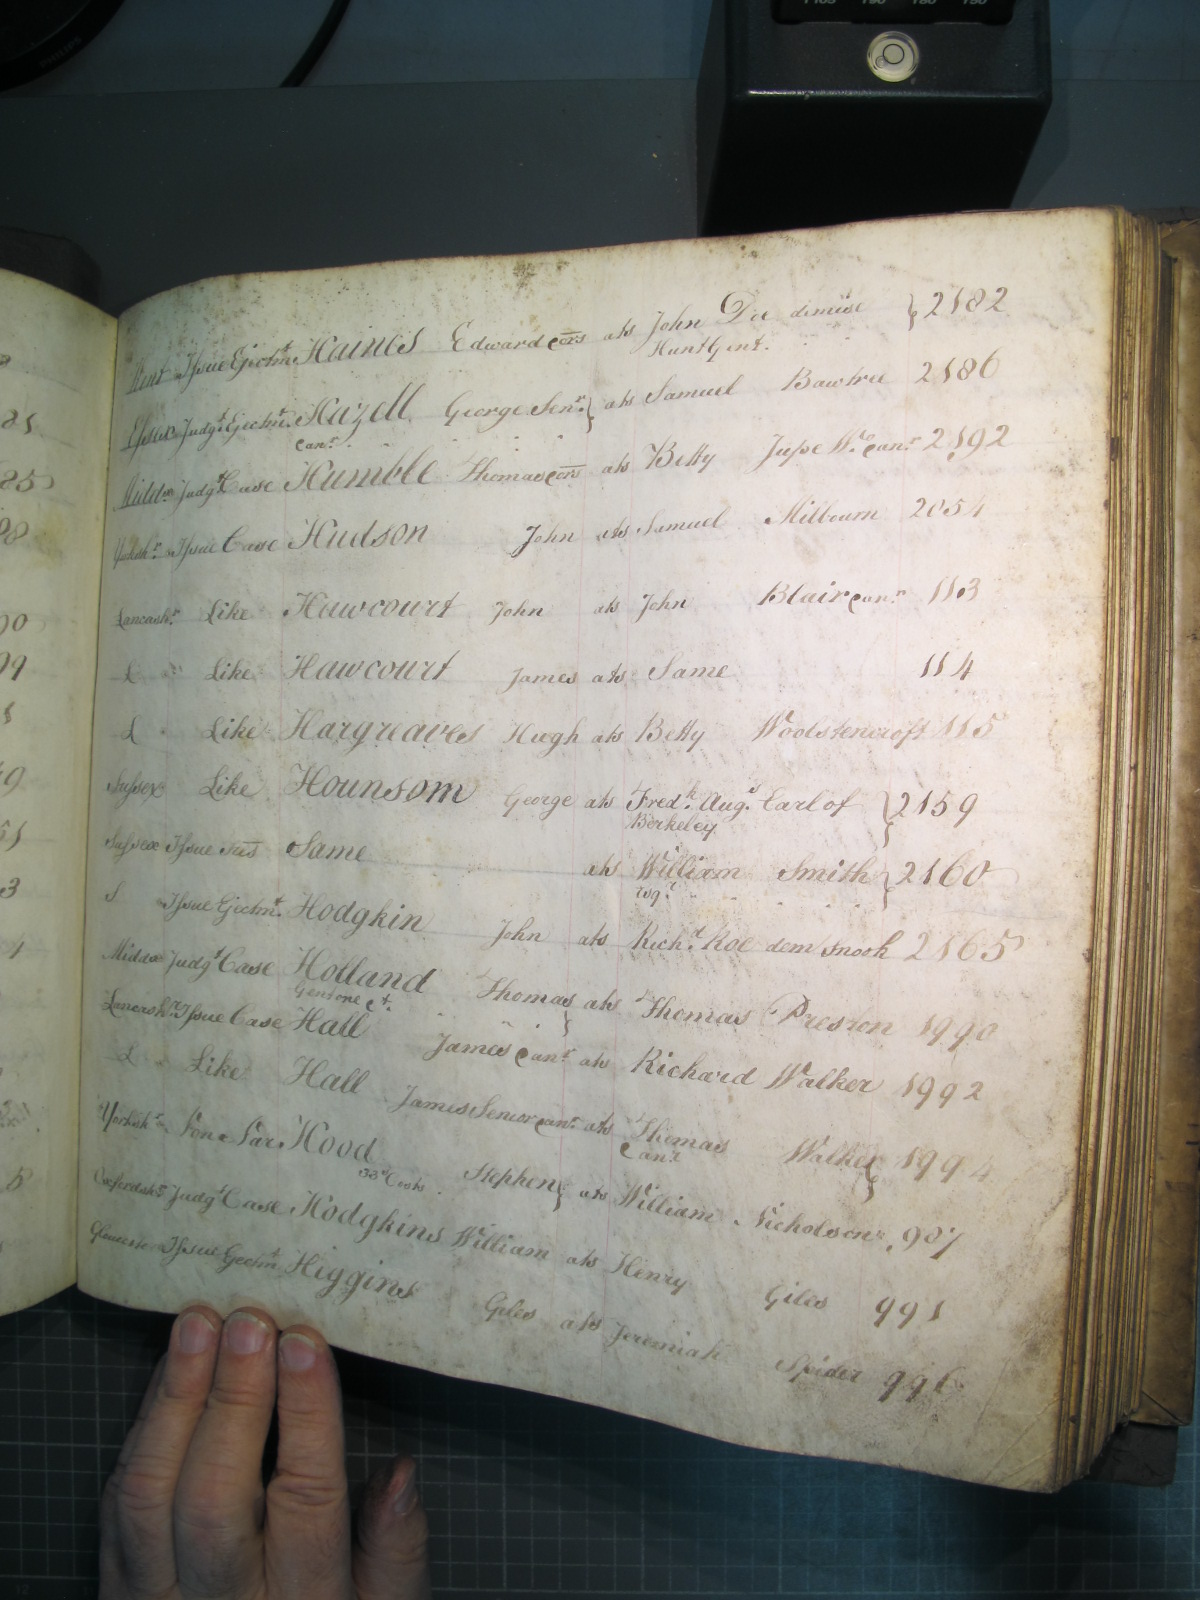 Kent Issue Ejectmt. Haines Edward & ors ats John Doe demise } 2182
Hunt Gent.
Essex Judgt. Ejectmt. Hazell George Senr. } ats Samuel Bawtree 2186
& anr.
Middx Judgt. Case Humble Thomas & ors ats Betty Jusse Wo. & anr. 2192
Yorksh. Issue Case Hudson John ats Samuel Milbourn 2054
Lancashr. Like Hawcourt John ats John Blair & anr. 113
L Like Hawcourt James ats Same 114
L Like Hargreaves Hugh ats Betty Woolstencroft 115
Sussex Like Hounsom George ats Fredk. Augs. Earl of } 2159
Berkeley
Sussex Issue Tres Same ats William Smith } 2160
Esqr.
S Issue Ejectmt. Hodgkin John ats Richd. Roe dem Snook 2165
Middx Judgt. Case Holland Thomas } ats Thomas Preston 1990
Gent one &c.
Lancashr. Issue Case Hall James & anr. ats Richard Walker 1992
L Like Hall James Senior & anr. ats Thomas Walker } 1994
& anr.
Yorksh. Hood Stephen } ats William Nicholson 907
Costs
Oxfordshr. Judgt. Case Hodgkins William ats Henry Giles 991
Issue Ejectmt. Higgins Giles ats Jeremiah Spider 996